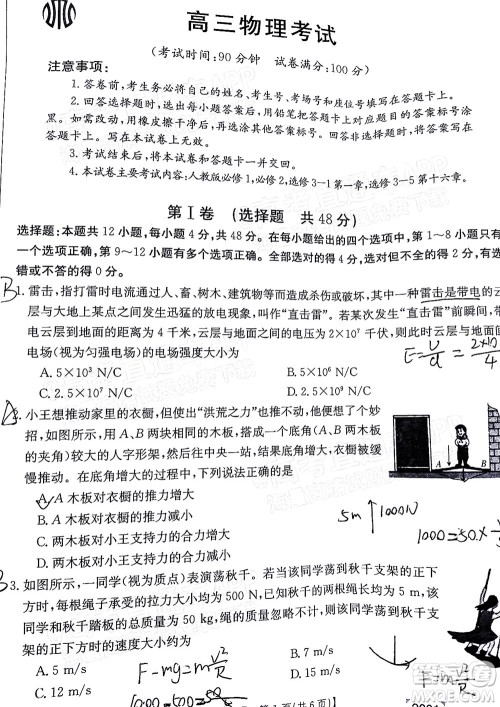 高三物理考试
(考试时间:90分钟 试卷满分:100分)
注意事项:
1. 答卷前,考生务必将自己的姓名、考生号、考场号和座位号填写在答题卡上。
2. 回答选择题时,选出每小题答案后,用铅笔把答题卡上对应题目的答案标号涂
黑。如需改动,用橡皮擦干净后,再选涂其他答案标号。回答非选择题时,将答案写在
答题卡上。写在本试卷上无效。
3. 考试结束后,将本试卷和答题卡一并交回。
4. 本试卷主要考试内容:人教版必修1,必修2,选修3-1第一章,选修3-5第十六章。
第Ⅰ卷 (选择题 共48分)
选择题:本题共12小题,每小题4分,共48分。在每小题给出的四个选项中,第1~8小题只有
一个选项正确,第9~12小题有多个选项正确。全部选对的得4分,选对但不全的得2分,有选
错或不答的得0分。
B 1. 雷击,指打雷时电流通过人、畜、树木、建筑物等而造成杀伤或破坏,其中一种雷击是带电的云
层与大地上某点之间发生迅猛的放电现象,叫作“直击雷”。若某次发生“直击雷”前瞬间云
层与地面的距离为4千米,云层与地面之间的电压为2×10⁷ 伏,则此时云层与地面间的
电场(视为匀强电场)的电场强度大小为
E=U/d=
A. 5×10⁵ N/C
B. 5×10³ N/C
C. 2.5×10⁷ N/C
D. 2.5×10⁵ N/C
A 2. 小王想推动家里的衣橱,但使出“洪荒之力”也推不动,他便想了个妙
招,如图所示,用A、B两块相同的木板,搭成一个底角(A、B两木板
的夹角)较大的人字形架,然后往中央一站,结果底角增大,衣橱被缓
慢推动。在底角增大的过程中,下列说法正确的是
A. A木板对衣橱的推力增大
B. A木板对衣橱的推力减小
C. 两木板对小王的支持力增大
D. 两木板对小王支持力减小
A
B
5m
1000N
B 3. 如图所示,一同学(视为质点)表演荡秋千。若该同学荡到秋千支架的正下
方时,每根绳子承受的拉力大小均为500 N,已知秋千的两根绳长均为5 m,该
同学和秋千踏板的总质量为50 kg,绳的质量忽略不计,则该同学荡到秋千支
架的正下方时的速度大小约为
A. 5 m/s
B. 7 m/s
C. 10 m/s
D. 15 m/s
F-mg=mv²/R
1000-500=